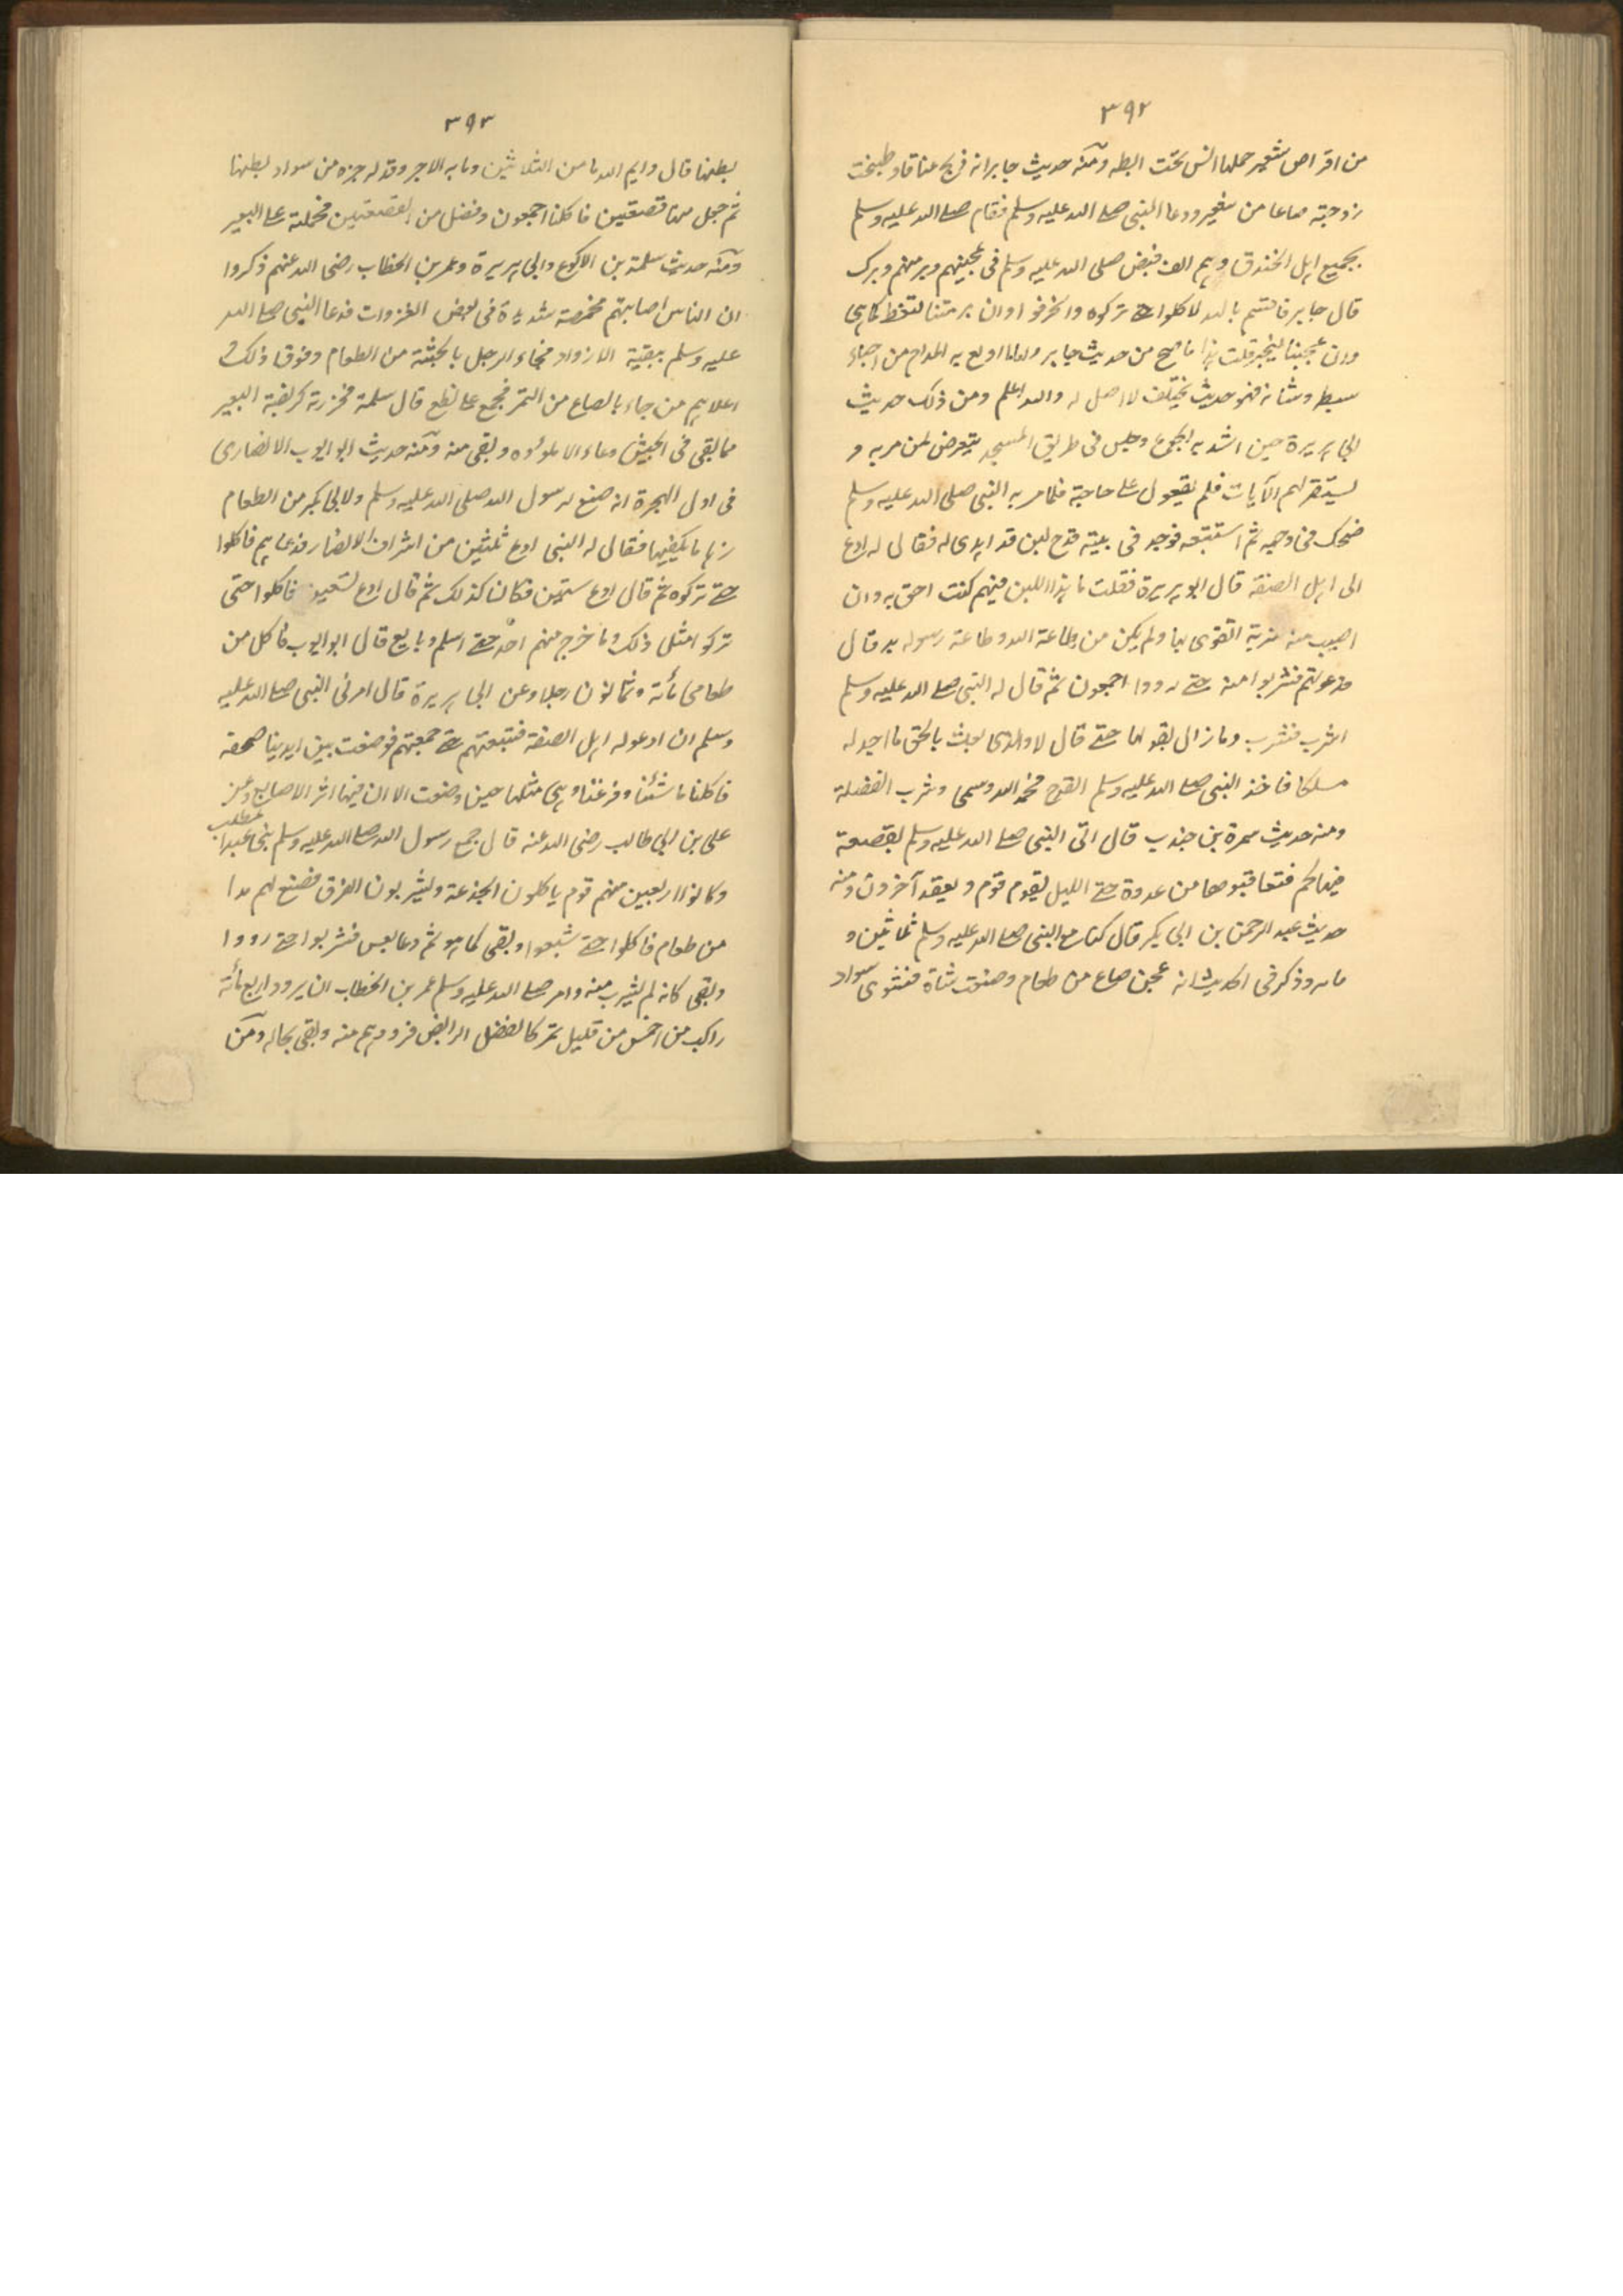 ٣٩٢
من اقراص شعير حملها انس تحت ابطه ومنه حديث جابر انه ذبح عناقا و طبخت
زوجته صاعا من شعير ودعا النبى صلے الله عليه وسلم فقام صلے الله عليه وسلم
بجميع اهل الخندق وهم الف فبصق صلى الله عليه وسلم فى عجينهم وبرمتهم وبرك
قال جابر فاقسم بالله لاكلوا حتے تركوه وانحرفوا وان برمتنا لتغط كما هى
وان عجيننا ليخبز قلت هذا ما صح من حديث جابر واما من احياء
فهو حديث مختلف لا اصل له والله اعلم ومن ذلك حديث
ابى هريرة حين اشتد به الجوع وجلس فى طريق المسجد يتعرض لمن مر به و
يستقرئهم الآيات فلم يقع علے حاجته فلما مر به النبى صلى الله عليه وسلم
ضحك فى وجهه ثم استتبعه فوجد فى بيته قدح لبن قد اهدى له فقال له ادع
الى اهل الصفة قال ابو هريرة فقلت ما هذا اللبن فيهم كنت احق به وان
اصيب منه شربة اتقوى بها ولم يكن من طاعة الله وطاعة رسوله بد قال
فدعوتهم فشربوا منه حتے رووا اجمعون ثم قال له النبى صلے الله عليه وسلم
اشرب فشرب وما زال يقولها حتے قال لا والذى بعثك بالحق ما اجد له
مسلكا فاخذ النبى صلے الله عليه وسلم القدح فحمد الله وسمى وشرب الفضلة
ومنه حديث سمرة بن جندب قال اتى النبى صلے الله عليه وسلم بقصعة
فيها لحم فتعاقبوها من غدوة حتے الليل يقوم قوم و يقعد آخرون ومنه
حديث عبد الرحمن بن ابى بكر قال كنا مع النبى صلے الله عليه وسلم ثلاثين و
مائة وذكر فى الحديث انه عجن صاع من طعام وصنعت شاة فشوى سواد
٣٩٣
بطنها قال وايم الله ما من الثلاثين ومائة الا وقد له حزة من سواد بطنها
ثم جعل منها قصعتين فاكلنا اجمعون وفضل من القصعتين فحملته علے البعير
ومنه حديث سلمة بن الاكوع وابى هريرة وعمر بن الخطاب رضى الله عنهم ذكروا
ان الناس اصابتهم مخمصة شديدة فى بعض الغزوات فدعا النبى صلے الله
عليه وسلم ببقية الازواد فجاء الرجل بالحثية من الطعام وفوق ذلك
اعلاهم من جاء بالصاع من التمر فجمع علے نطع قال سلمة فحزرته كربضة البعير
فما بقى فى الجيش وعاء الا ملؤه وبقى منه ومنه حديث ابو ايوب الانصارى
فى اول الهجرة انه صنع لرسول الله صلى الله عليه وسلم ولابى بكر من الطعام
زهاء ما يكفيهما فقال له النبى ادع ثلثين من اشراف الانصار فدعاهم فاكلوا
حتے تركوه ثم قال ادع ستين فكان كذلك ثم قال ادع تسعين فاكلوا حتى
تركوا مثل ذلك وما خرج منهم احد حتے اسلم وبايع قال ابو ايوب فاكل من
طعامى مائة وثمانون رجلا وعن ابى هريرة قال امرنى النبى صلے الله عليه
وسلم ان ادعو له اهل الصفة فتتبعتهم حتے جمعتهم فوضعت بين ايدينا صحفة
فاكلنا ما شئنا وفرغنا وهى مثلها حين وضعت الا ان فيها اثر الاصابع وعن
على بن ابى طالب رضى الله عنه قال جمع رسول الله صلے الله عليه وسلم بنى عبد المطلب
وكانوا اربعين منهم قوم ياكلون الجذعة ويشربون الفرق فصنع لهم مدا
من طعام فاكلوا حتے شبعوا وبقى كما هو ثم دعا بعس فشربوا حتے رووا
وبقى كانه لم يشرب منه وامر صلے الله عليه وسلم عمر بن الخطاب ان يزود اربعمائة
راكب من احمس من قليل تمر كالفصيل الرابض فزودهم منه وبقى بحاله ومن